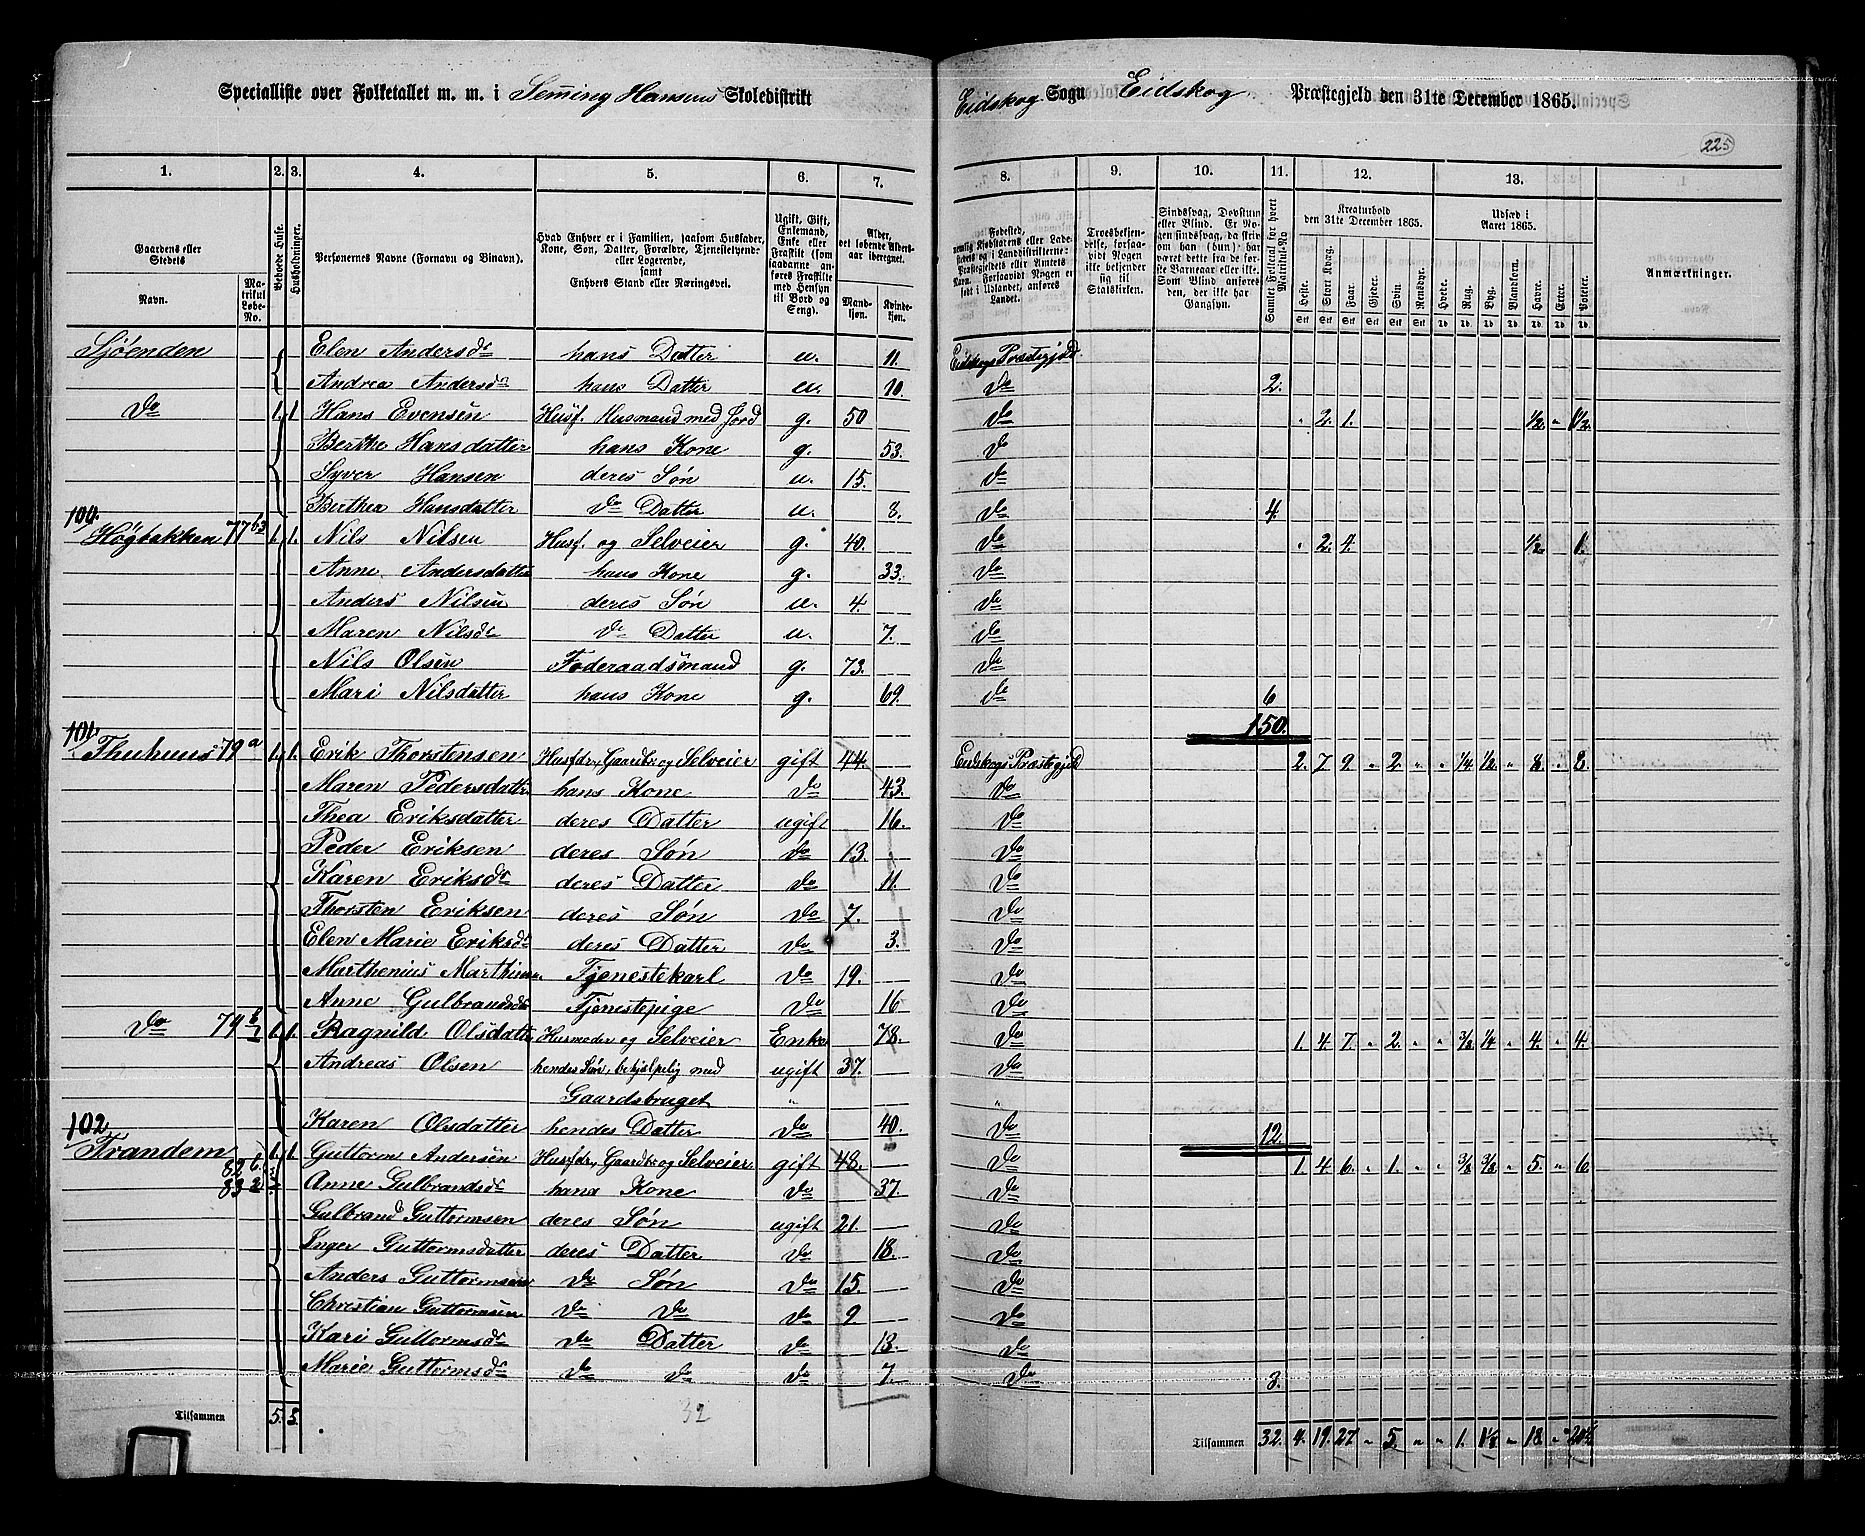 Specialliste over Folketallet m. m. i Semming Hansens Skoledistrikt Eidskog Sogn Eidskog Præstegjeld den 31te December 1865.
225
1. 2. 3. 4. 5. 6. 7. 8. 9. 10. 11. 12. 13.
Gaardens eller Stedets
Navn. Matrikul Løbe-No.
Beboede Huse.
Husholdninger.
Personernes Navne (Fornavn og Binavn).
Hvad Enhver er i Familien, saasom Husfader, Kone, Søn, Datter, Forældre, Tjenestetyende eller Logerende, samt Enhvers Stand eller Næringsvei.
Ugift, Gift, Enkemand, Enke eller Fraskilt (som saadanne anføres Fraskilte med Hensyn til Bord og Seng).
Alder, det løbende Aldersaar iberegnet.
Mandkjøn. Kvindekjøn.
Fødested, nemlig Kjøbstadens eller Ladestedets og i Landdistrikterne: Præstegjeldets eller Amtets Navn. Forsaavidt Nogen er født i Udlandet, anføres Landet.
Troesbekjendelse, forsaavidt Nogen ikke bekjender sig til Statskirken.
Sindssvag, Døvstum eller Blind. Er Nogen sindssvag, da skrives om han (hun) har været dette fra de første Barneaar eller ikke. Som Blind anføres den, der ikke har Gangsyn.
Samlet Folketal for hvert Matrikul-No
Kreaturhold den 31te December 1865.
Heste. Stort Kvæg. Faar. Gjeder. Svin. Rensdyr.
Udsæd i Aaret 1865.
Hvede. Rug. Byg. Blandkorn. Havre. Erter. Poteter.
Anmærkninger.
Sjøenden Elen Andersdr hans Datter u. 11. Eidskogs Præstegjeld
Andrea Andersdr hans Datter u. 10. do 2.
do 1. 1. Hans Evensen Husf. Husmand med Jord g. 50 do " 2. 1. ½ " 1½.
Berthe Hansdatter hans Kone g. 53. do
Syver Hansen deres Søn u. 15. do
Berthea Hansdatter do Datter u. 8. do 4.
100. Høgbakken 77 b3 1. 1. Nils Nilsen Husf. og Selveier g. 40. do " 2. 4. ½. 1.
Anne Andersdatter hans Kone g. 33. do
Anders Nilsen deres Søn u. 4. do
Maren Nilsdr do Datter u. 7. do
Nils Olsen Føderaadsmand g. 73. do
Mari Nilsdatter hans Kone g. 69. do 6
150.
101. Thuhuus 79 a 1. 1. Erik Thorstensen Husfdr, Gaardbr. og Selveier gift 44. Eidskogs Præstegjeld 2. 7 9 " 2. " " ¼ ½ " 8. " 8.
Maren Pedersdatter hans Kone do 43. do
Thea Eriksdatter deres Datter ugift 16. do
Peder Eriksen deres Søn do 13. do
Karen Eriksdr deres Datter do 11. do
Thorsten Eriksen deres Søn do 7. do
Elen Marie Eriksdr deres Datter do 3. do
Marthenius Marthinsen Tjenestekarl do 19. do
Anne Gulbrandsdr Tjenestepige do 16 do
do 79 b 1 1. 1. Ragnild Olsdatter Husmoder og Selveier Enke 78. do 1. 4. 7. " 2. " " ⅜ ¼ " 4. " 4.
Andreas Olsen hendes Søn, behjælpelig med ugift 37. do
Gaardsbruget " "
Karen Olsdatter hendes Datter do 40. do 12.
102 Trandem 1. 1. Guttorm Andersen Husfdr, Gaardbr. og Selveier gift 48. do 1. 4 6. " 1. " " ⅜ ⅜ " 5. " 6.
82 b 83 2 Anne Gulbrandsdr hans Kone do 37. do
Gulbrand Guttormsen deres Søn ugift 21. do
Inger Guttermsdatter deres Datter do 18. do
Anders Guttormsen do Søn do 15. do
Christian Guttormsen do do do 9 do
Kari Guttormsdr do Datter do 13. do
Marie Guttormsdr do do do 7. do 3.
Tilsammen 5. 5. 32 Tilsammen 32. 4. 19. 27 " 5. " " 1. " 18. "